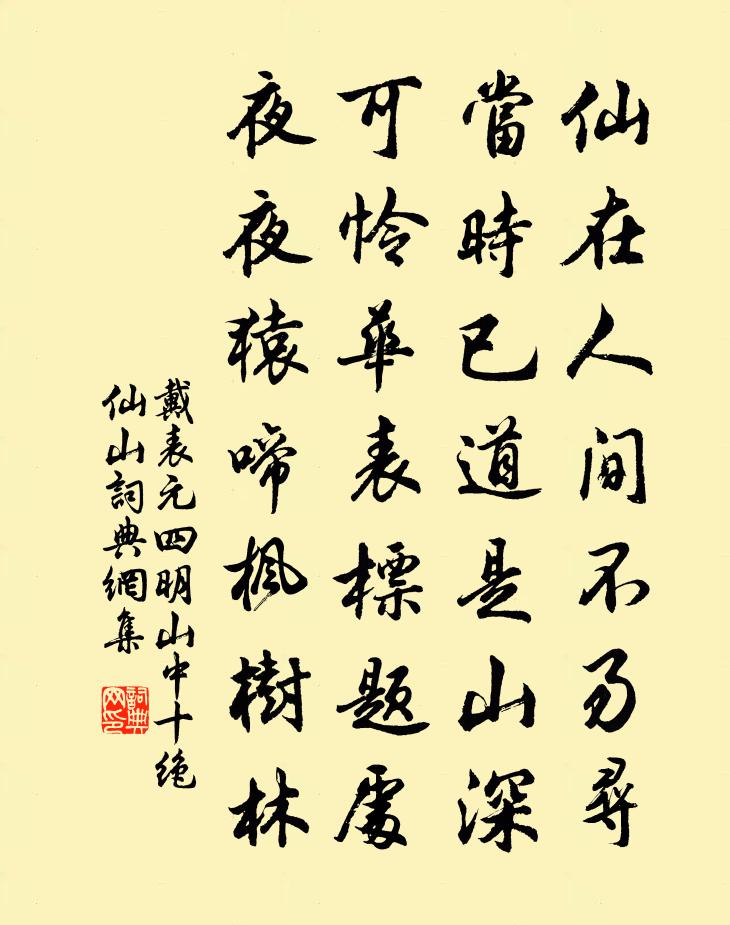 仙在人间不易尋
當時已道是山深
可怜華表標題處
夜夜猿啼枫樹林
戴表元四明山中十绝
仙山詞典網集
詞典网印